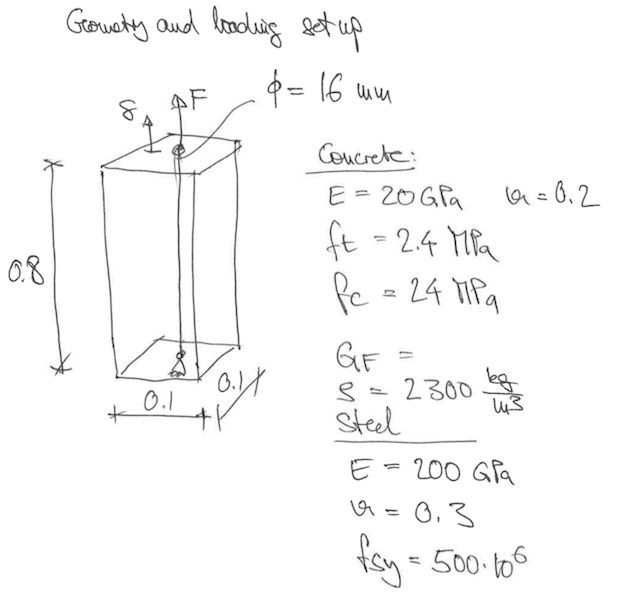 Geometry and loading set up
δ F ϕ = 16 mm
Concrete:
E = 20 GPa ν = 0.2
ft = 2.4 MPa
fc = 24 MPa
0.8
GF =
ρ = 2300 kg/m3
0.1 0.1
Steel
E = 200 GPa
ν = 0.3
fsy = 500·10^6